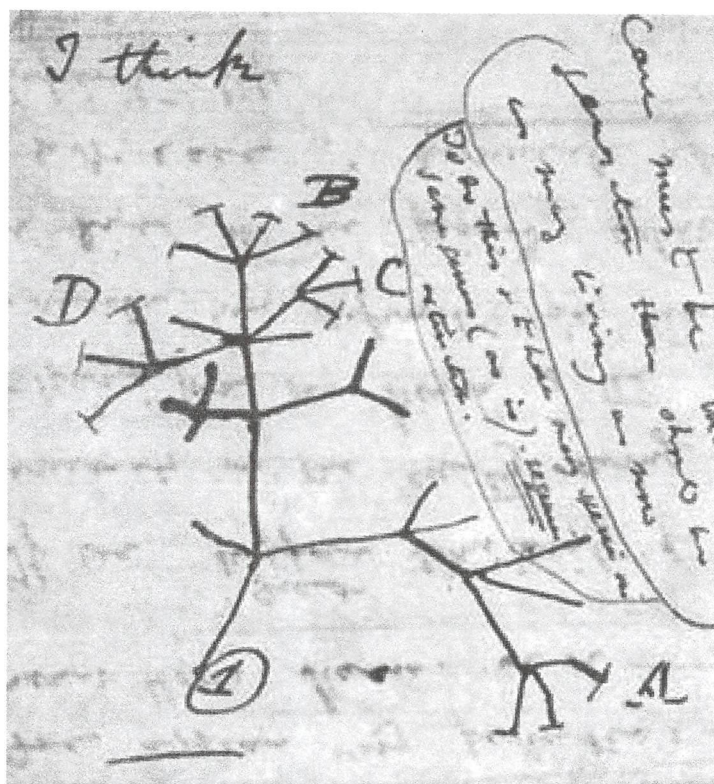 I think
Case must be
generation then should be
as many living as now
To do this & to have many species in
same genus (as is). requires
extinction.
B
C
D
A
1